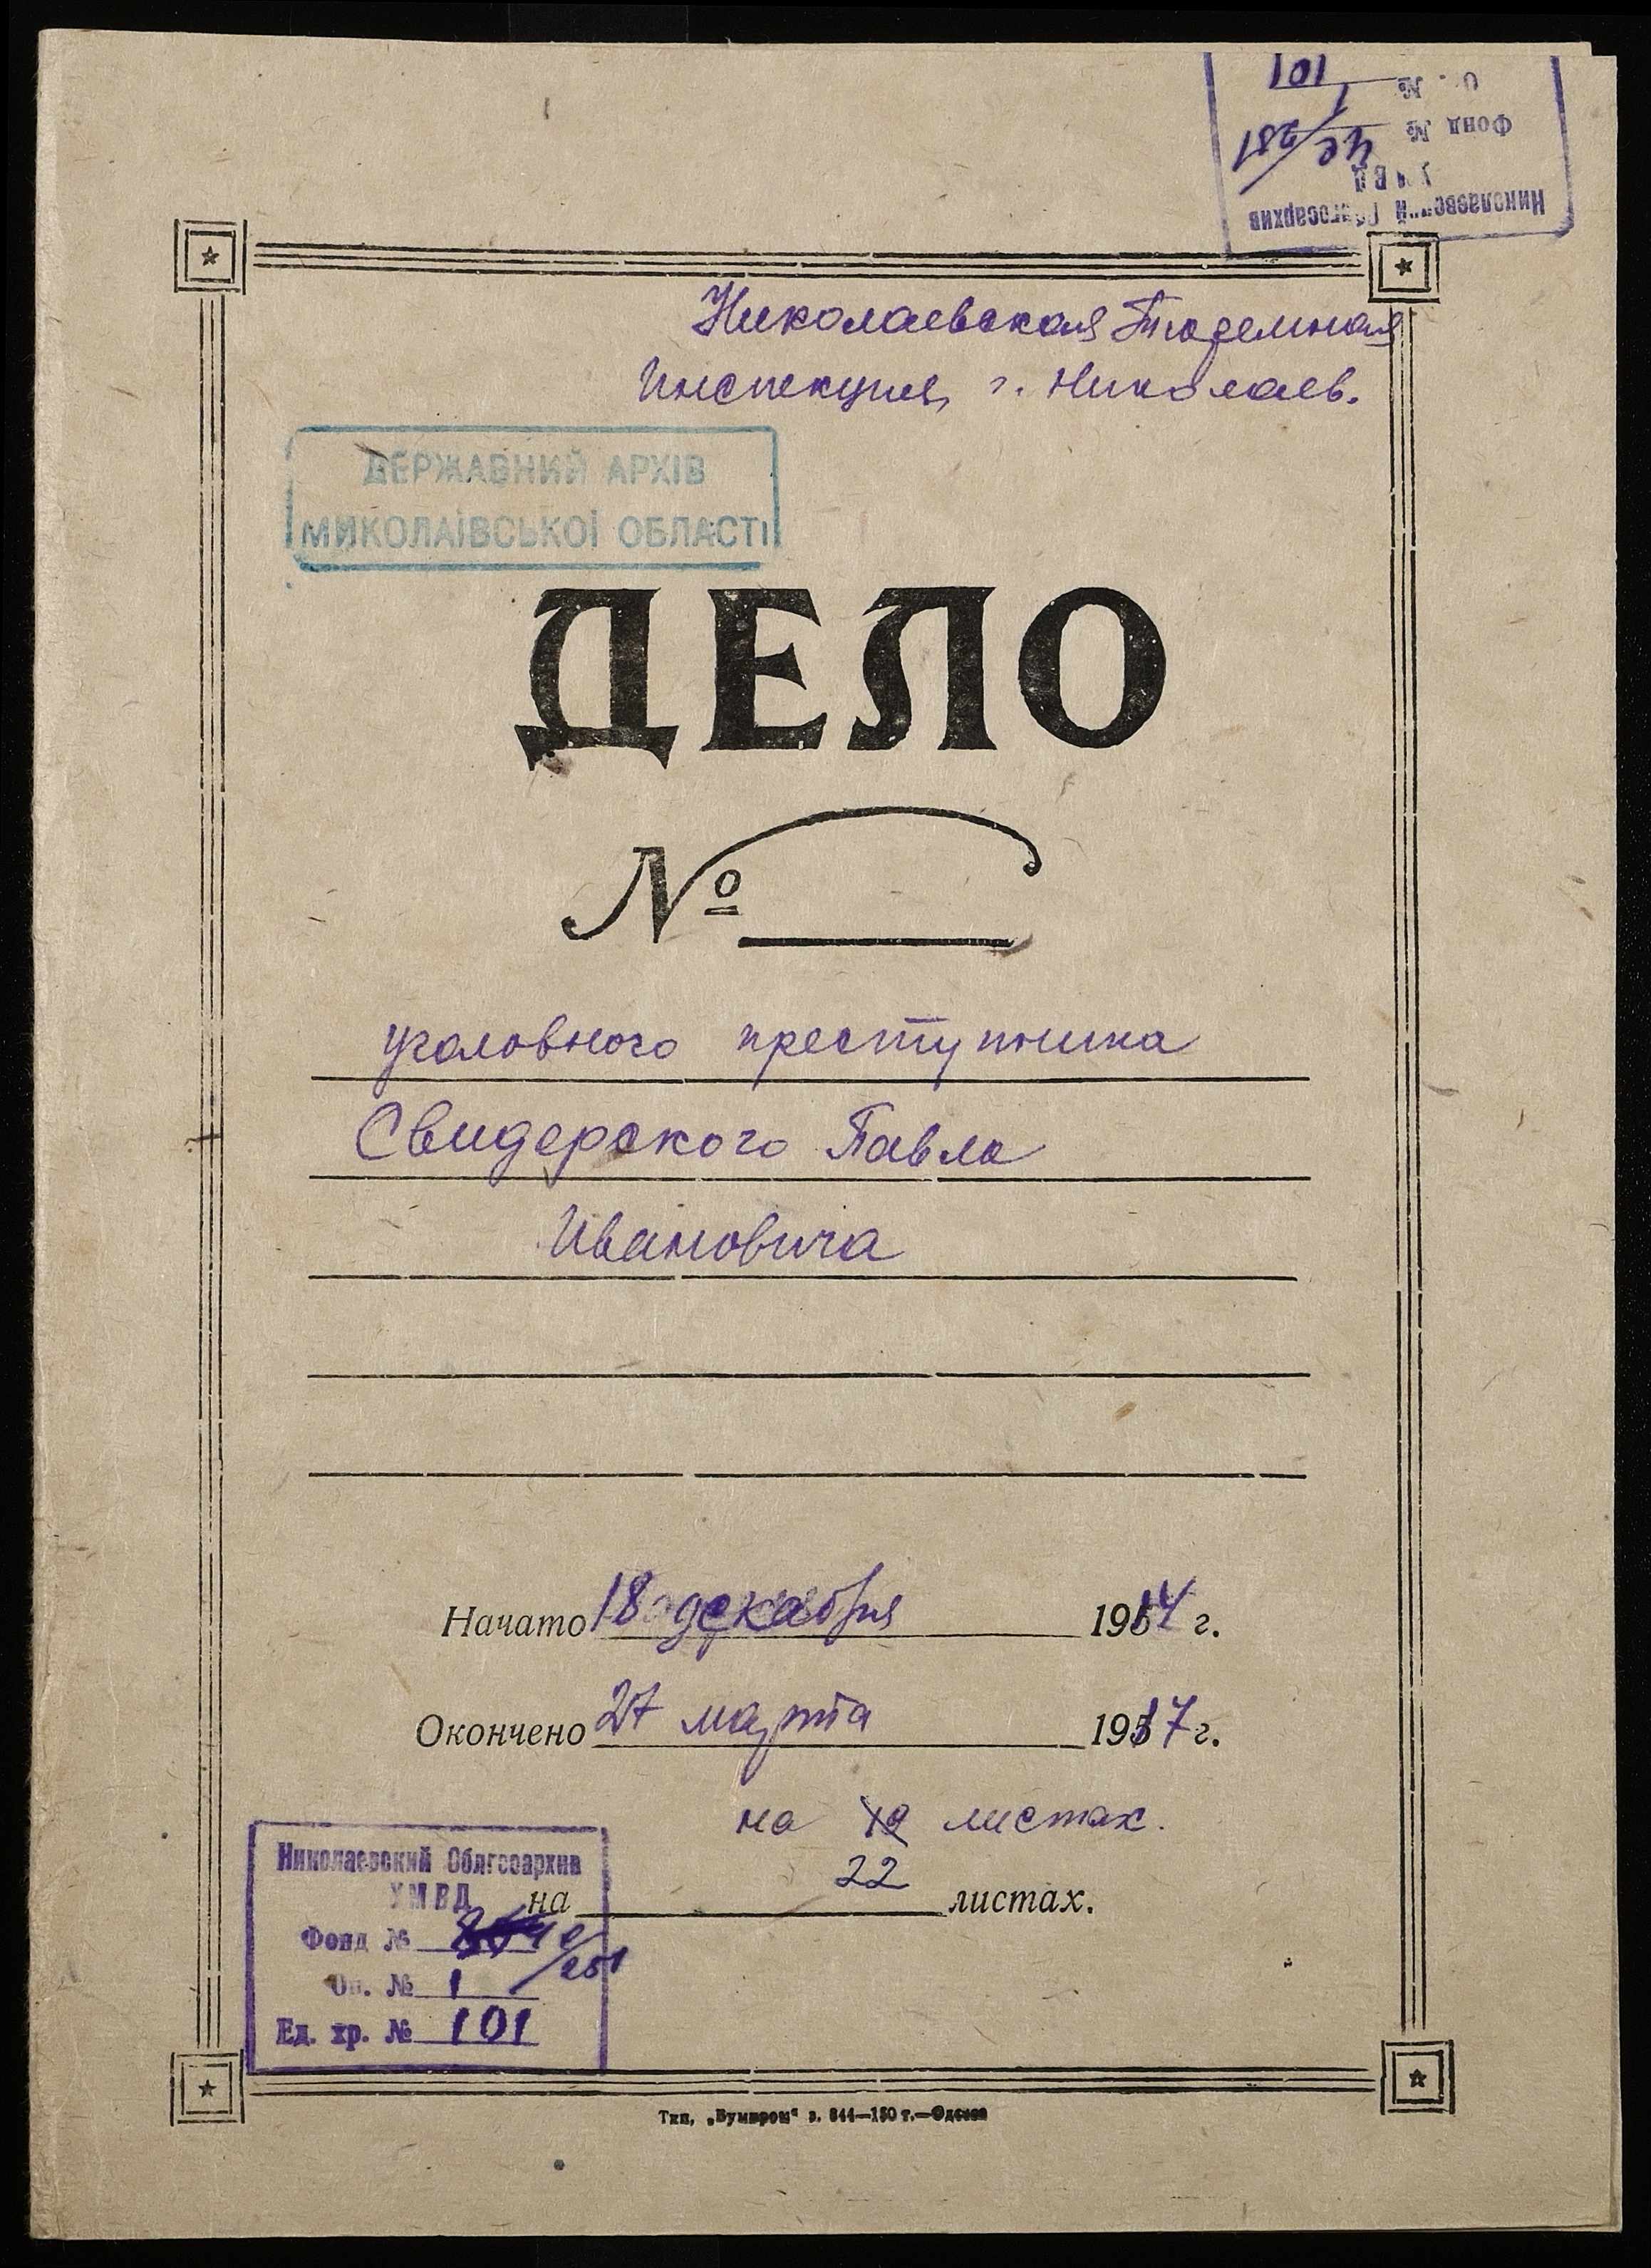 101
Фонд № 42/251
УМВД
Николаевский Облгосархив
Николаевская Тюремная
Инспекция, г. Николаев.
ДЕРЖАВНИЙ АРХІВ
МИКОЛАЇВСЬКОЇ ОБЛАСТІ
ДЕЛО
№
уголовного преступника
Свидерского Павла
Ивановича
Начато 18 декабря 1914 г.
Окончено 27 марта 1917 г.
на листах.
22
на листах.
Николаевский Облгосархив
УМВД
Фонд № /251
Оп. № 1
Ед. хр. № 101
Тип. „Бумпром" з. 844—150 т.—Одесса